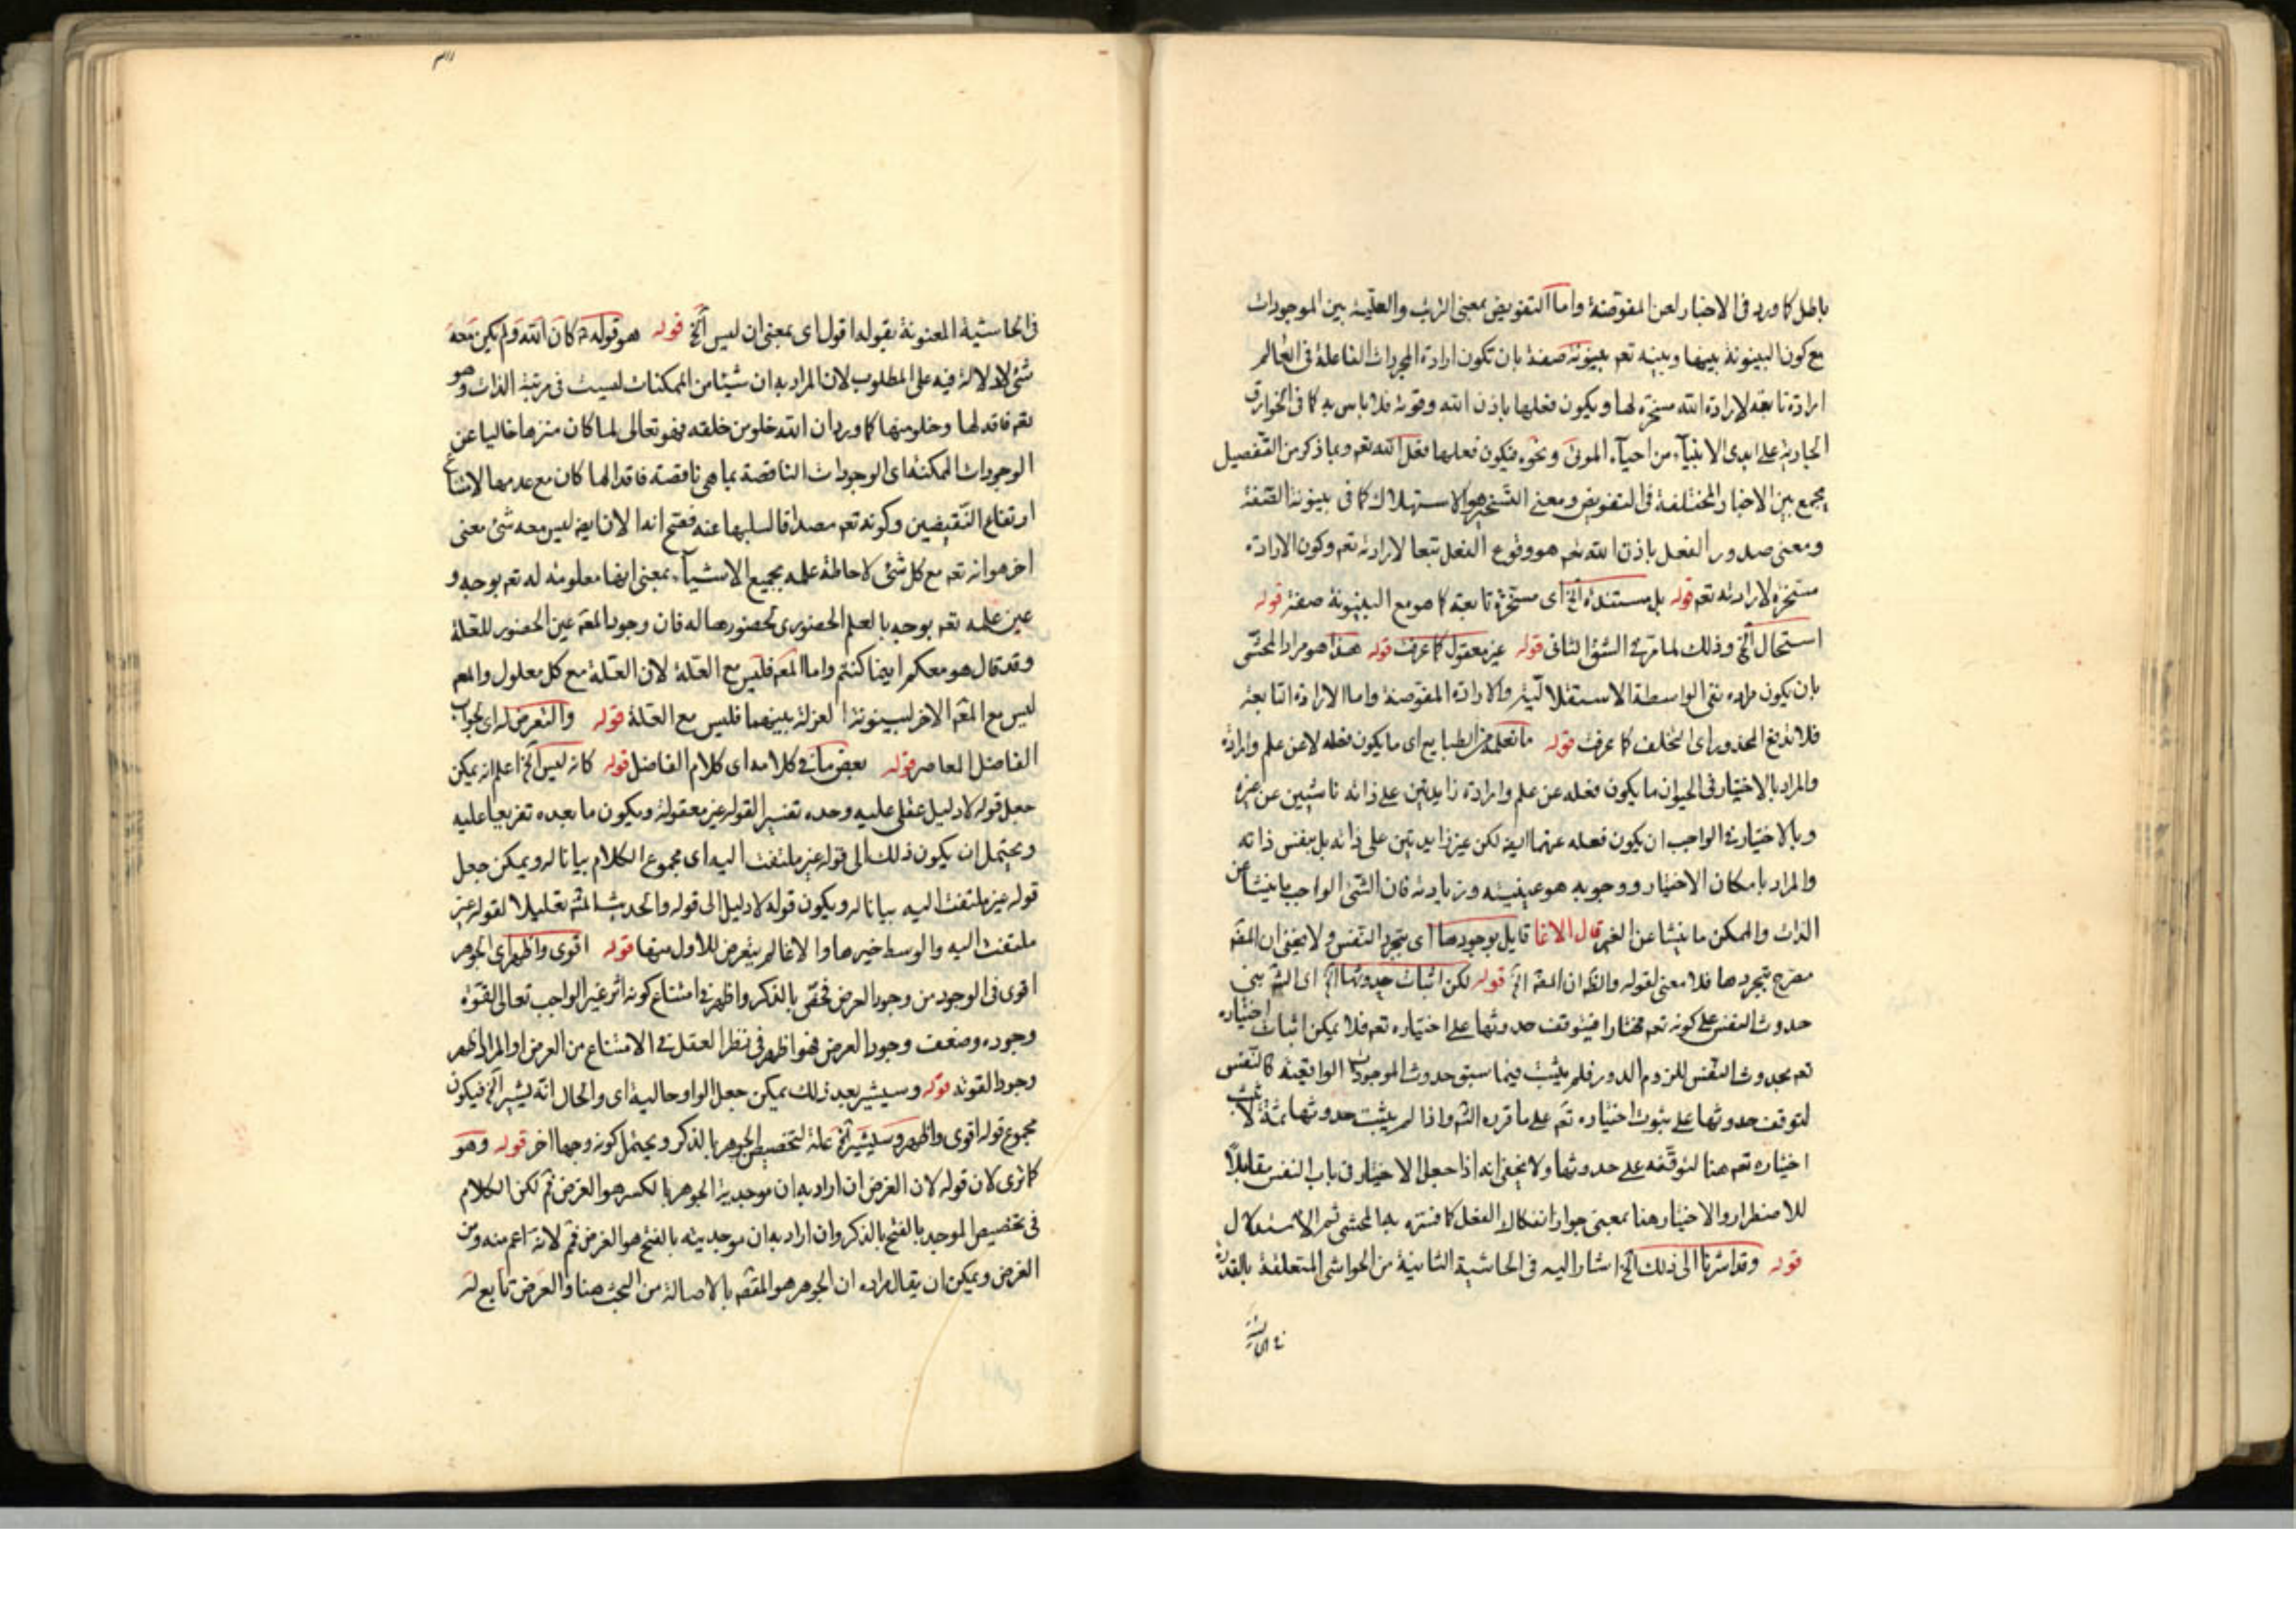 باطل كما ورد فى الاخبار لعن المفوضة واما التفويض بمعنى الترتب والعلّية بين الموجودات
مع كون البينونة بينها وبينه تعم بينونة صفة بان تكون ارادة المجردات الفاعلة فى العالم
ارادة تابعة لارادة الله مسخرة لها ويكون فعلها باذن الله وقوته فلا باس به كما فى الخوارق
الجارية على ايدى الانبيآء من احيآء الموتى ونحوه فيكون فعلها فعل الله تعم وبما ذكر من التفصيل
يجمع بين الاخبار المختلفة فى التفويض ومعنى التسخير هو الاستهلاك كما فى بينونة الصفة
ومعنى صدور الفعل باذن الله تعم هو وقوع الفعل تبعا لارادته تعم وكون الارادة
مسخرة لارادته تعم قوله بل مستقلة الخ اى مسخرة تابعة كما هو مع البينونة صفة قوله
استحال الخ وذلك لما مر فى الشق الثانى قوله غير معقول كما عرفت قوله هذا هو مراد المحشى
بان يكون مراده نفى الواسطة الاستقلالية والارادة المفوضة واما الارادة التابعة
فلا تدفع المحذور اى التخلف كما عرفت قوله ما تفعله الطبايع اى ما يكون فعله لا عن علم وارادة
والمراد بالاختيار فى الحيوان ما يكون فعله عن علم وارادة زايدتين على ذاته ناشيين عن غيره
وبالاختيار فى الواجب ان يكون فعله عنهما ايضا لكن غير زايدتين على ذاته بل بنفس ذاته
والمراد بامكان الاختيار ووجوبه هو عينيته وزيادته فان الشئ الواجب ما ينشأ عن
الذات والممكن ما ينشا عن الغير قال الاغا قايل بوجودها اى بتجرد النفس ولا يخفى ان المصّ
مصرح بتجردها فلا معنى لقوله والظ ان المصّ الخ قوله لكن اثبات حدوثها الخ اى الشّ بنى
حدوث النفس على كونه تعم مختارا فيتوقف حدوثها على اختياره تعم فلا يمكن اثبات اختياره
تعم بحدوث النفس للزوم الدور فلم يثبت فيما سبق حدوث الموجودات الواقعية كالنفس
لتوقف حدوثها على ثبوت اختياره تعم على ما قرره الشّ واذا لم يثبت حدوثها ثمة لا يثبت
اختياره تعم هنا لتوقفه على حدوثها ولا يخفى انه اذا جعل الاختيار فى باب النفس مقابلاً
للاضطرار والاختيار هنا بمعنى جواز انفكاك الفعل كما فسره به المحشى تم الاستدلال
قوله وقد اشرنا الى ذلك الخ اشار اليه فى الحاشية الثانية من الحواشى المتعلقة بالقدرة
فى الحاشية
فى الحاشية المعنونة بقوله اقول اى بمعنى ان ليس الخ قوله هو قوله كان الله ولم يكن معه
شئ لا دلالة فيه على المطلوب لان المراد به ان شيئا من الممكنات ليست فى مرتبة الذات وهو
تعم فاقد لها وخلو منها كما ورد ان الله خلو من خلقه فهو تعالى لما كان منزها خاليا عن
الوجودات الممكنة اى الوجودات الناقصة بما هى ناقصة فاقدا لها كان مع عدمها لامتناع
ارتفاع النقيضين وكونه تعم مصداقا لسلبها عنه فصح انه الان ايضا ليس معه شئ معنى
اخر هو انه تعم مع كل شئ لاحاطة علمه بجميع الاشيآء بمعنى انها معلومة له تعم بوجه و
عين علمه تعم بوجه بالعلم الحضورى لحضورها له فان وجود المعّ عين الحضور للعلة
وقد قال هو معكم اينما كنتم واما المعّ فليس مع العلة لان العلة مع كل معلول والمعّ
ليس مع المعّ الاخر لبينونة العزلة بينهما فليس مع العلة قوله والتعرض له اى لجواب
الفاضل المعاصر قوله بعض ما فى كلامه اى كلام الفاضل قوله كانه ليس الخ اعلم انه يمكن
جعل قوله لا دليل عقلى عليه وحده تفسيرا لقوله غير معقولة ويكون ما بعده تفريعا عليه
ويحتمل ان يكون ذلك الى قوله غير ملتفت اليه اى مجموع الكلام بيانا له ويمكن جعل
قوله غير ملتفت اليه بيانا له ويكون قوله لا دليل الى قوله والحديث المش تعليلا لقوله غير
ملتفت اليه والوسط خيرها والاغا لم يتعرض للاول منها قوله اقوى واظهر اى الجوهر
اقوى فى الوجود من وجود العرض فخص بالذكر واظهر فى امتناع كونه اثر غير الواجب تعالى لقوة
وجوده وضعف وجود العرض فهو اظهر فى نظر العقل فى الامتناع من العرض او المراد اظهر
وجودا لقوته قوله وسيشير بعد ذلك يمكن جعل الواو حالية اى والحال انه يشير الخ فيكون
مجموع قوله اقوى واظهر وسيشير الخ علة لتخصيص الجوهر بالذكر ويحتمل كونه وجها اخر قوله وهو
كما ترى لان قوله لان الغرض ان اراد به ان موجدية الجوهر بالكسر هو الغرض فم لكن الكلام
فى تخصيص الموجد بالفتح بالذكر وان اراد به ان موجديته بالفتح هو الغرض فم لانه اعم منه ومن
العرض ويمكن ان يقال مراده ان الجوهر هو المقصّ بالاصالة من البحث هنا والعرض تابع له